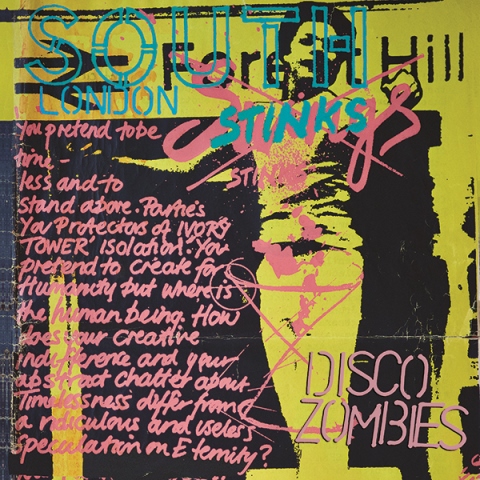 SOUTH
Fore Hill
LONDON
STINKS
You pretend to be
time-
less and to
stand above. Parties
You Protectors of IVORY
TOWER' isolation. You
pretend to create for
Humanity but where is
the human being. How
does your creative
indifference and your
abstract chatter about
Timelessness differ from
a ridiculous and useless
speculation on Eternity?
DISCO
ZOMBIES